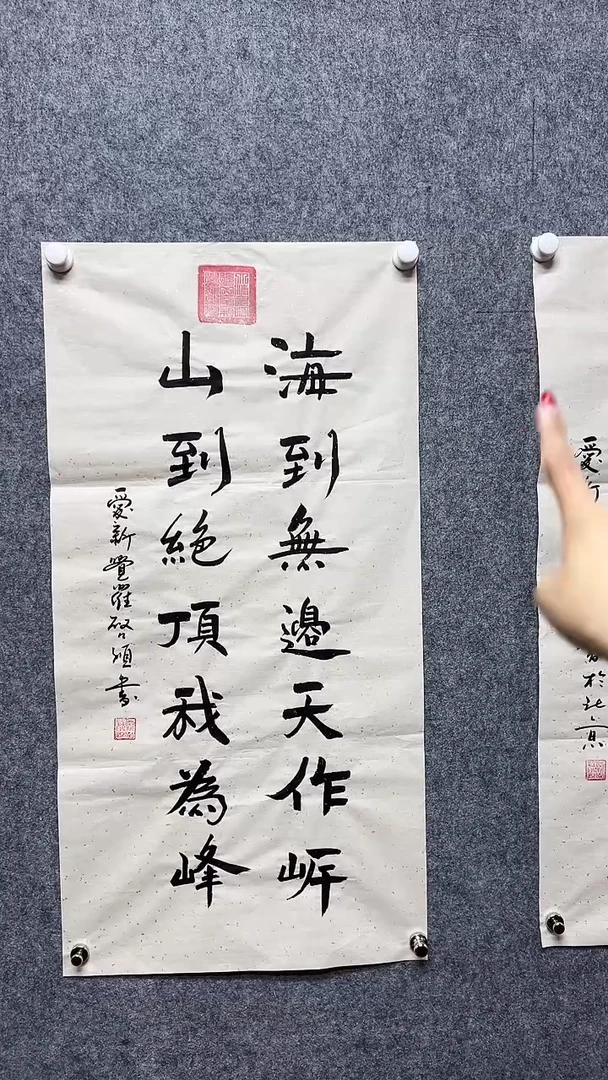 海到無邊天作岸
山到絕頂我為峰
愛新覺羅啓書
愛新
於北京